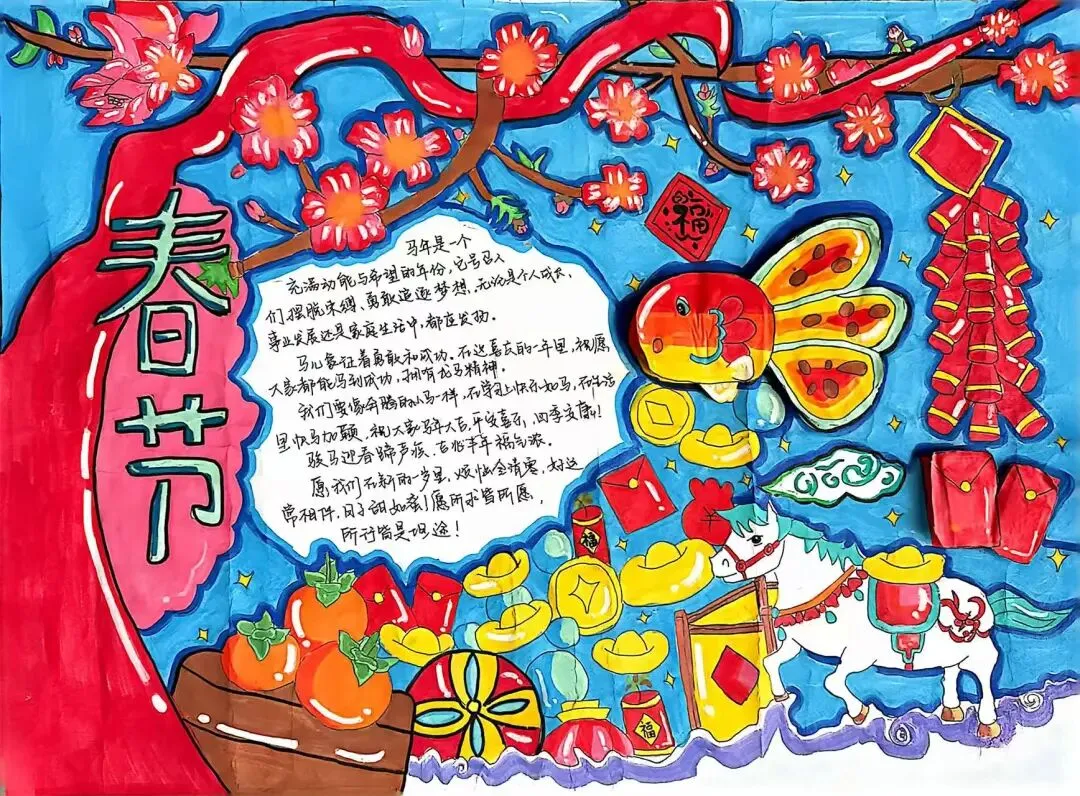 春节
福
马年是一个
充满动能与希望的年份，它号召人
们摆脱束缚、勇敢追逐梦想，无论是个人成长、
事业发展还是家庭生活中，都应发扬。
马儿象征着勇敢和成功。在这喜庆的一年里，祝愿
大家都能马到成功，拥有龙马精神。
我们要像奔腾的小马一样，在学习上快乐如马，在生活
里快马加鞭，祝大家马年大吉，平安喜乐，四季安康！
骏马迎春蹄声疾，吉兆丰年福气添。
愿我们在新的一岁里，烦恼全清零，好运
常相伴，日子甜如蜜！愿所求皆所愿，
所行皆是坦途！
福
福